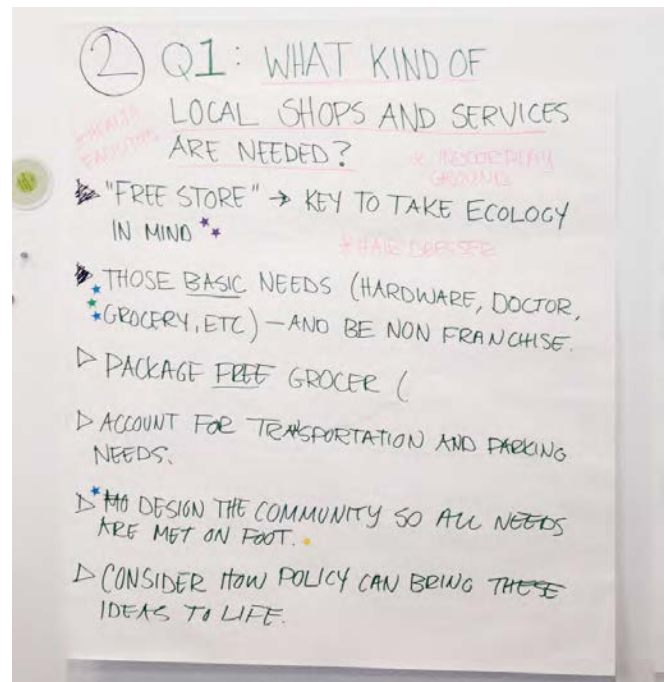 ② Q1: WHAT KIND OF
LOCAL SHOPS AND SERVICES
ARE NEEDED?
* HEALTH
* INDOOR PLAY
GROUND
"FREE STORE" → KEY TO TAKE ECOLOGY
IN MIND
* HAIR DRESSER
THOSE BASIC NEEDS (HARDWARE, DOCTOR,
GROCERY, ETC) — AND BE NON FRANCHISE.
PACKAGE FREE GROCER (
ACCOUNT FOR TRANSPORTATION AND PARKING
NEEDS.
DESIGN THE COMMUNITY SO ALL NEEDS
ARE MET ON FOOT.
CONSIDER HOW POLICY CAN BRING THESE
IDEAS TO LIFE.